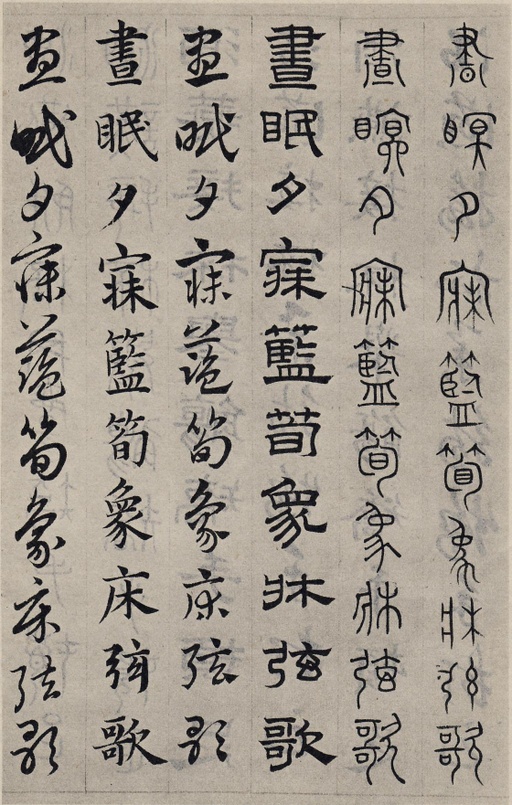 晝瞑夕寐籃筍象牀弦歌
晝瞑夕寐籃筍象牀弦歌
晝眠夕寐籃荀象牀弦歌
晝眠夕寐籃筍象床弦歌
晝眠夕寐籃筍象床弦歌
晝眠夕寐籃筍象床弦歌